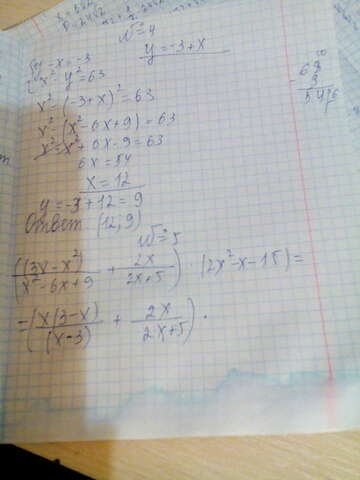 № 4
{ y - x = -3
{ x² - y² = 63
y = -3 + x
x² - (-3 + x)² = 63
x² - (x² - 6x + 9) = 63
x² - x² + 6x - 9 = 63
x = 12
y = -3 + 12 = 9
Ответ (12; 9)
№ 5
((3x - x²)/(x² - 6x + 9) + 2x/(2x + 5)) · (2x² - x - 15) =
= (x(3 - x)/(x - 3) + 2x/(2x + 5)) ·